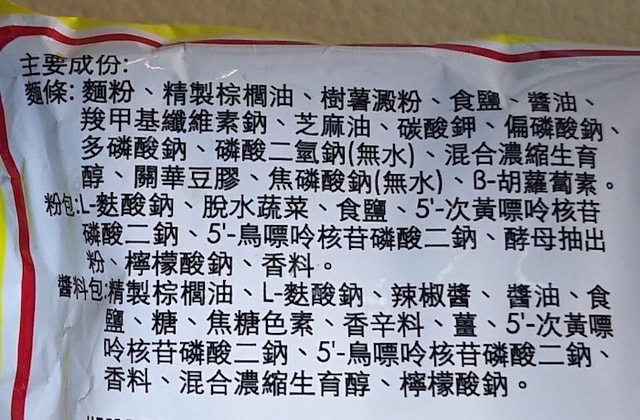 主要成份:
麵條: 麵粉、精製棕櫚油、樹薯澱粉、食鹽、醬油、
羧甲基纖維素鈉、芝麻油、碳酸鉀、偏磷酸鈉、
多磷酸鈉、磷酸二氫鈉(無水)、混合濃縮生育
醇、關華豆膠、焦磷酸鈉(無水)、ß-胡蘿蔔素。
粉包:L-麩酸鈉、脫水蔬菜、食鹽、5'-次黃嘌呤核苷
磷酸二鈉、5'-鳥嘌呤核苷磷酸二鈉、酵母抽出
粉、檸檬酸鈉、香料。
醬料包:精製棕櫚油、L-麩酸鈉、辣椒醬、醬油、食
鹽、糖、焦糖色素、香辛料、薑、5'-次黃嘌
呤核苷磷酸二鈉、5'-鳥嘌呤核苷磷酸二鈉、
香料、混合濃縮生育醇、檸檬酸鈉。